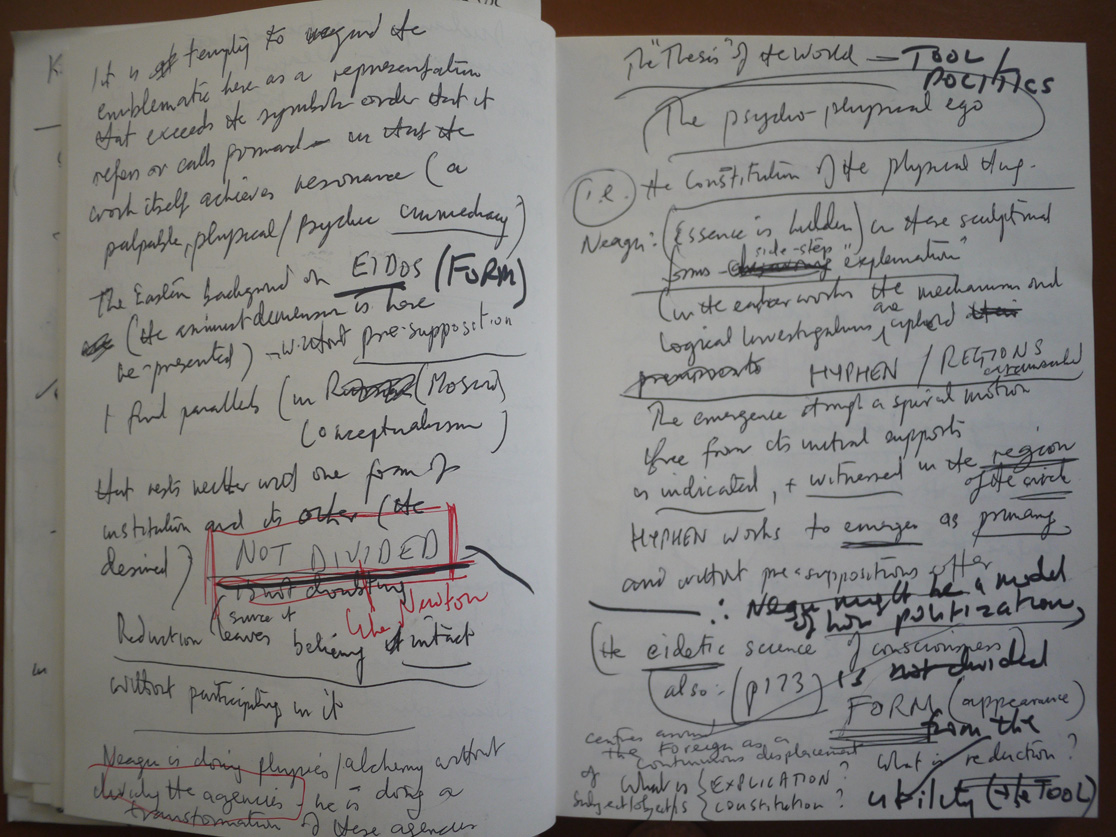 It is tempting to regard the
emblematic here as a representation
that exceeds the symbolic order that it
refers or calls forward – in that the
work itself achieves resonance (a
palpable, physical / psychic immediacy)
The Eastern background on EIDOS (FORM)
(the animist dimension is here
re-presented) – without pre-supposition
I find parallels (in (Moscow
Conceptualism)
that rests neither with one form of
institution and its other (the
desired)
NOT DIVIDED
is not doubting
(since it
like Newton
Reduction leaves believing intact
without participating in it
Neagu is doing physics / alchemy without
dividing the agencies – he is doing a
transformation of these agencies
The "Thesis" of the World – TOOL /
POLITICS
The psycho-physical ego
i.e. the Constitution of the physical thing.
Neagu: (Essence is hidden) in these sculptural
forms – side-step "explanation"
(in the earlier works the mechanism and
Logical Investigations are
HYPHEN / REGIONS
The emergence through a spiral motion
free from its initial supports
is indicated, + witnessed in the region
of the circle
HYPHEN works to emerge as primary,
and without pre-suppositions after
∴ Neagu might be a model
of non politization,
(the eidetic science of consciousness)
also: (p173) is not divided
FORM (appearance)
from the
centres around
the Foreign as a
continuous displacement
of
subject/objects
What is { EXPLICATION? What is reduction?
{ constitution? utility (the TOOL)